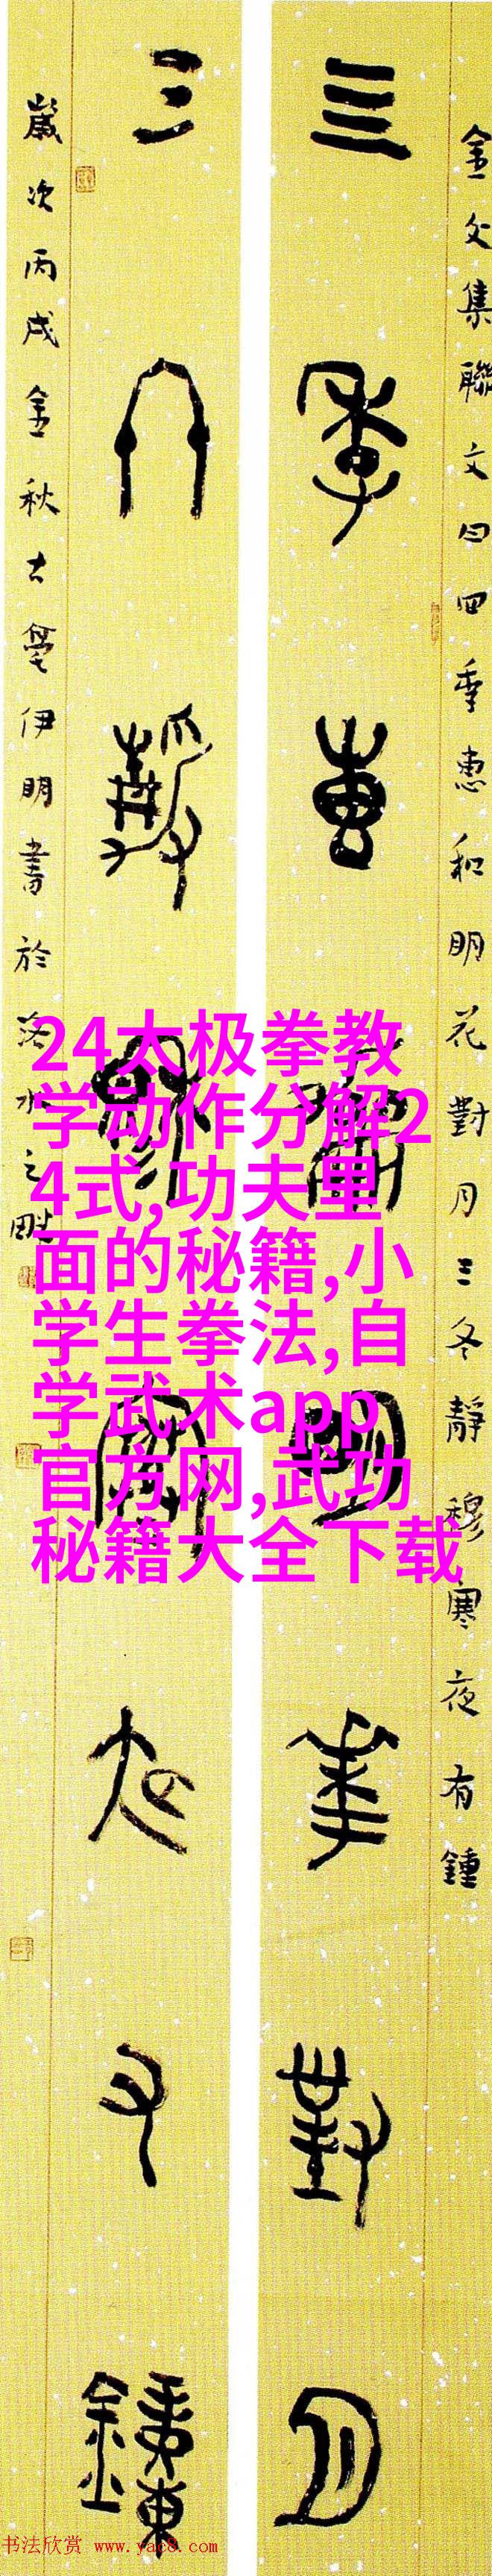 金文集聯文曰四季惠和明花對月三冬靜穆寒夜有鍾
四季惠和明華對月
三冬靜穆寒夜有鍾
歲次丙戌金秋古亳伊明書於洛水之畔
24太极拳教
学动作分解2
4式,功夫里
面的秘籍,小
学生拳法,自
学武术app
官方网,武功
秘籍大全下载
书法欣赏 www.yac8.com